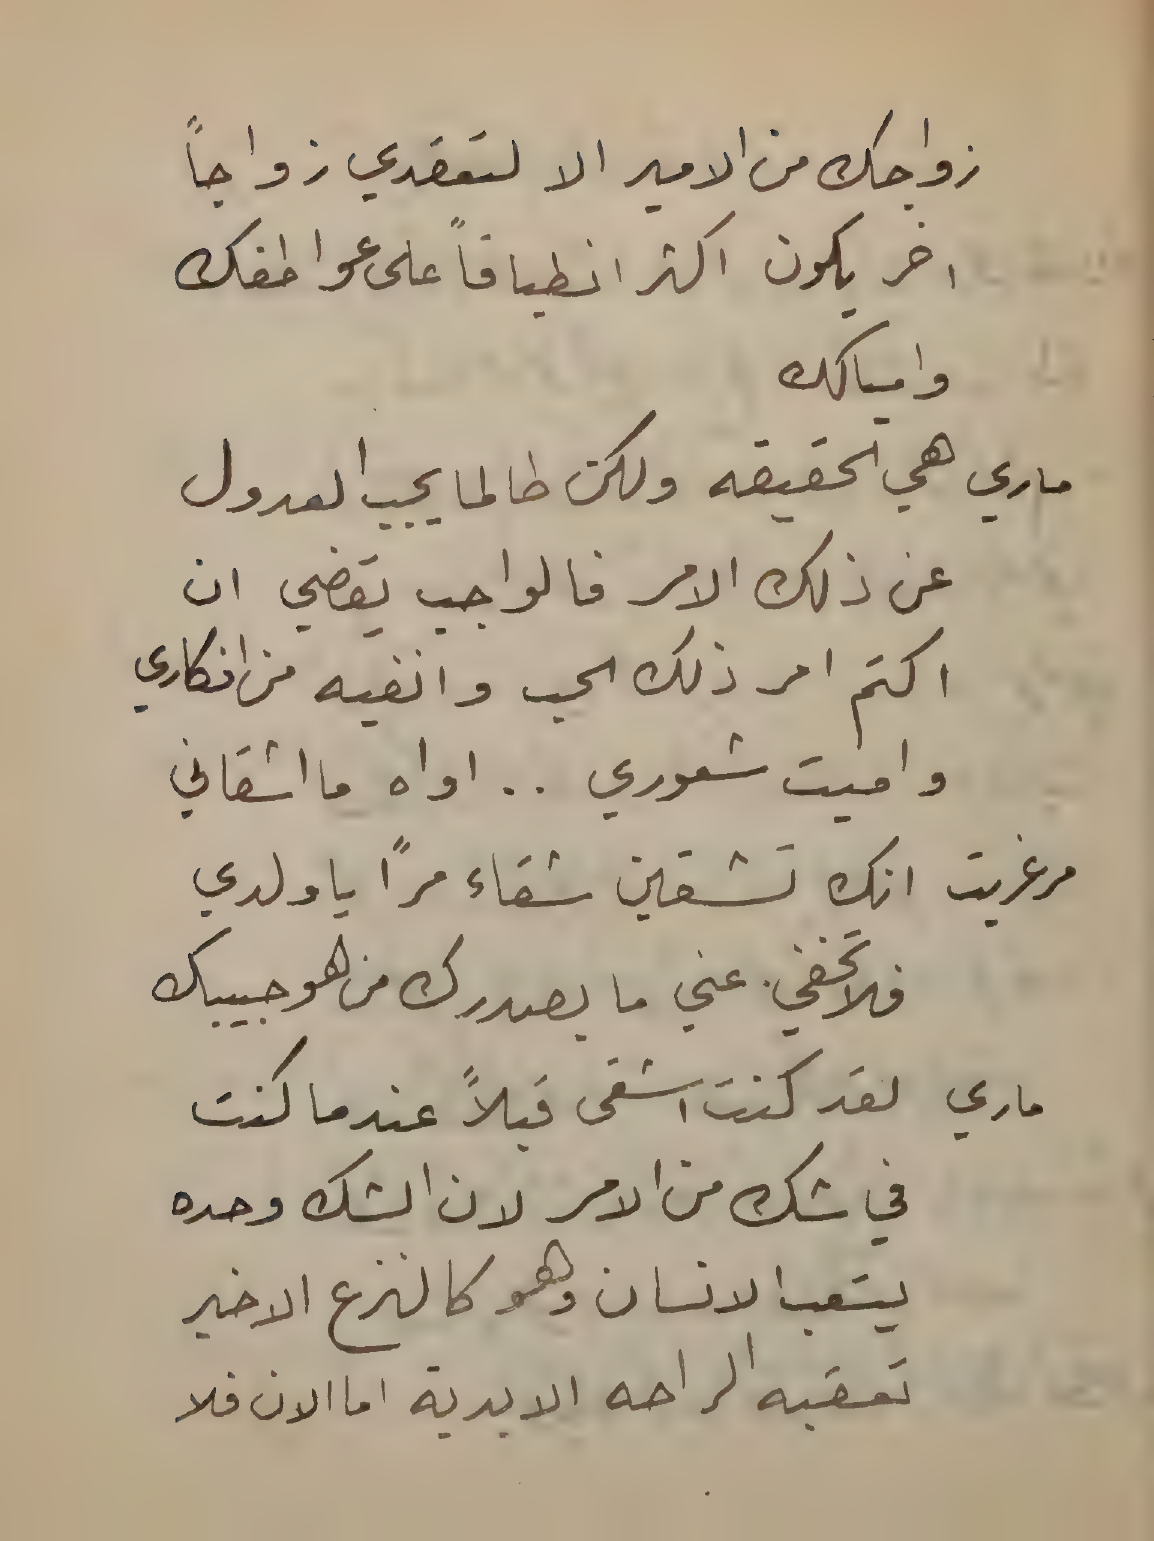 زواجك من الامير الا لتعقدي زواجاً
اخر يكون اكثر انطباقاً على عواطفك
واميالك
ماري هي الحقيقه ولكن طالما يجب العدول
عن ذلك الامر فالواجب يقضي ان
اكتم امر ذلك الحب وانفيه من افكاري
واميت شعوري .. اواه ما اشقاني
مرغريت انك تشقين شقاء مرًا يا ولدي
فلا تخفي عني ما بصدرك من هو حبيبك
ماري لقد كنت اشقى قبلاً عندما كنت
في شك من الامر لان الشك وحده
يتعب الانسان وهو كالنزع الاخير
تعقبه الراحه الابدية اما الان فلا